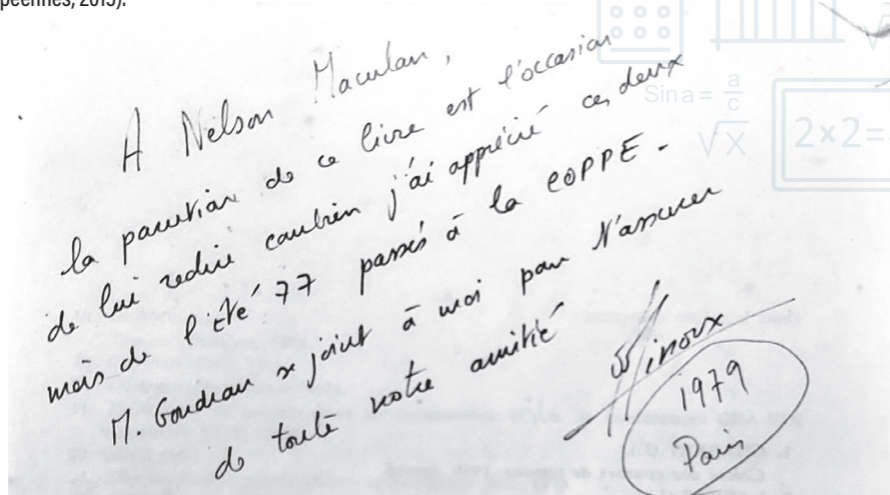 péennes, 2015).
A Nelson Maculan,
la parution de ce livre est l'occasion
de lui redire combien j'ai apprécié ces deux
mois de l'été 77 passés à la COPPE.
M. Gondran se joint à moi pour t'assurer
de toute notre amitié
Minoux
1979
Paris
Sina = a/c
√x
2×2=